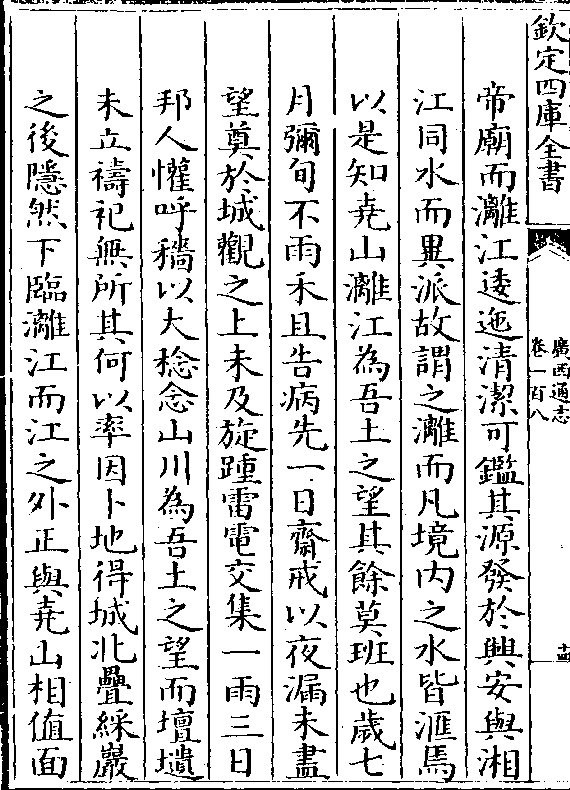 欽定四庫全書
廣西通志
卷一百八
十四
帝廟而灕江逶迤清潔可鑑其源發於興安與湘
江同水而異派故謂之灕而凡境内之水皆滙焉
以是知堯山灕江為吾土之望其餘莫班也歳七
月彌旬不雨禾且告病先一日齋戒以夜漏未盡
望奠於城觀之上未及旋踵雷電交集一雨三日
邦人懽呼穡以大稔念山川為吾土之望而壇壝
未立禱祀無所其何以率因卜地得城北疊綵巖
之後隱然下臨灕江而江之外正與堯山相值面